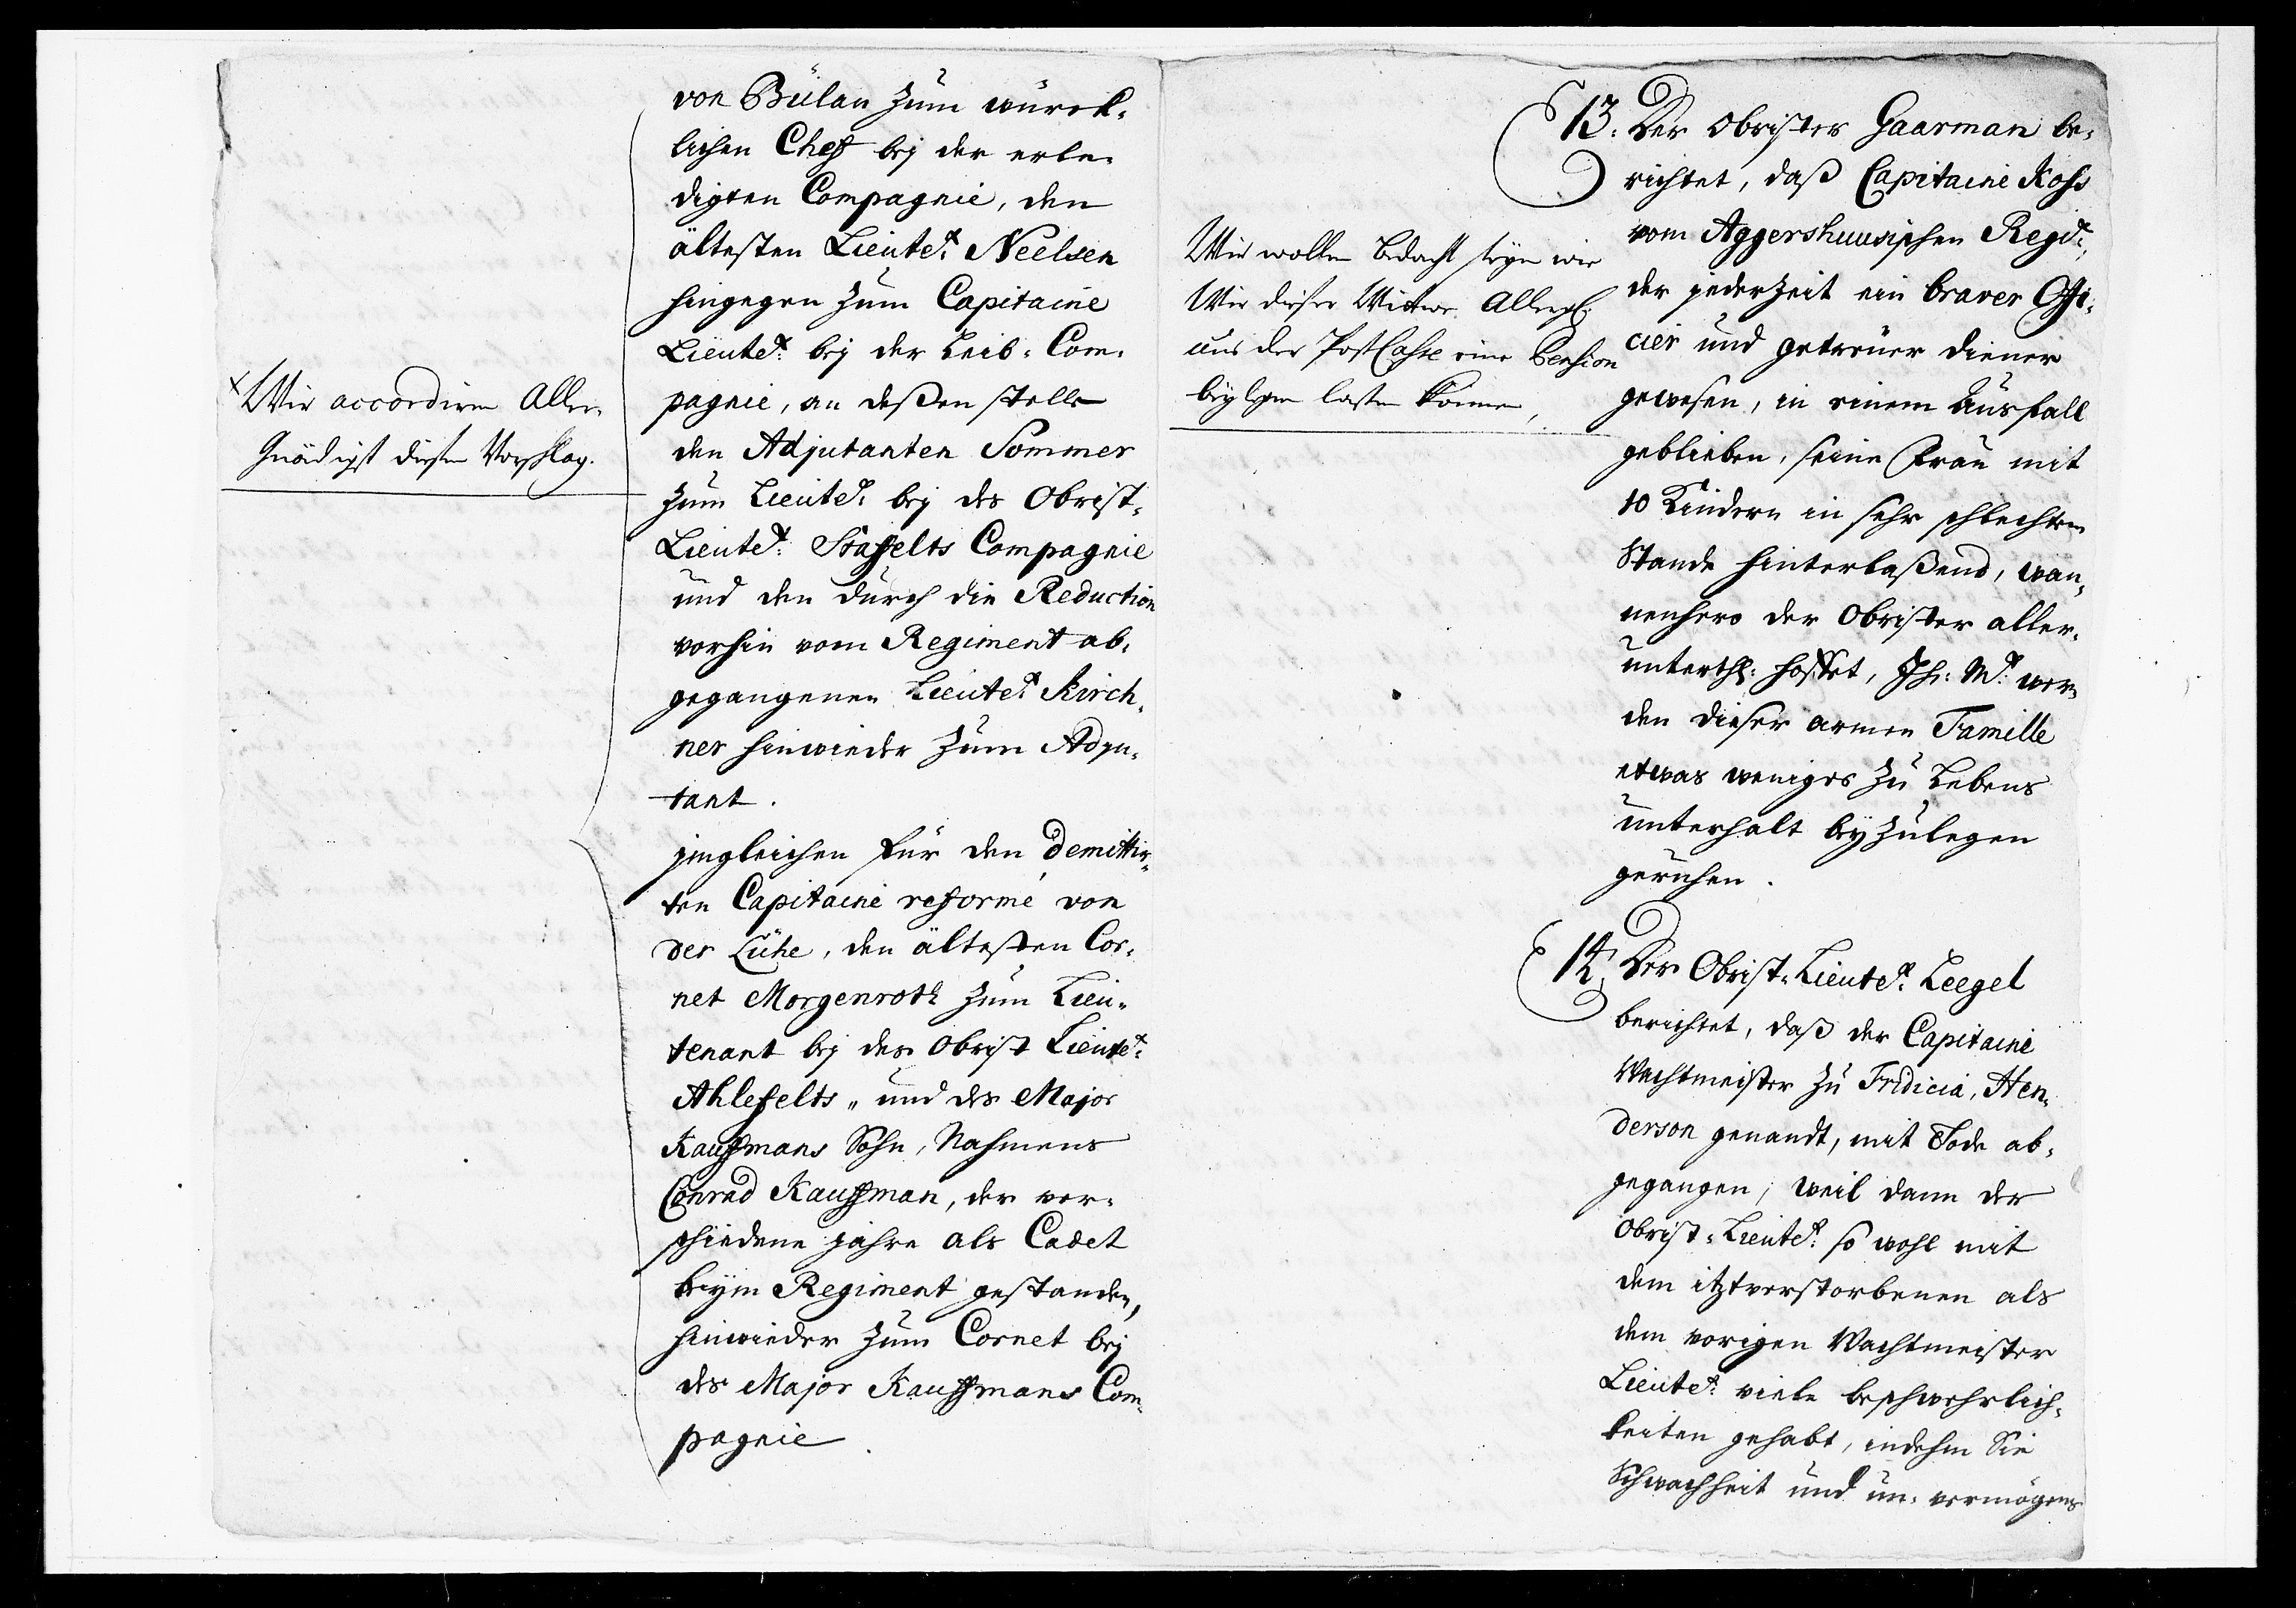 von Bülau zum würck-
lichen Chef bey der erle-
digten Compagnie, den
ältesten Lieute.t Neelsen
hingegen zum Capitaine
Lieute.t bey der Leib-Com-
pagnie, an deßen stelle
den Adjutanten Sommer
zum Lieute.t bey des Obrist-
Lieute.t Staffelts Compagnie
und den durch die Reduction
vorhin vom Regiment ab-
gegangenen Lieute.t Kirch-
ner hinwieder zum Adju-
tant.
jngleichen für den demittir-
ten Capitaine reformé von
der Lühe, den ältesten Cor-
net Morgenroth zum Lieu-
tenant bey des Obrist Lieute.t
Ahlefelts, und des Major
Kauffmans Sohn, Nahmens
Conrad Kauffman, der ver-
schiedene jahre als Cadet
beym Regiment gestanden,
hinwieder zum Cornet bey
des Major Kauffmans Com-
pagnie.
x Wir accordiren Aller-
Gnädigst diesen Vorschlag.
13. Der Obrister Gaarman be-
richtet, daß Capitaine Koss
vom Aggershuusischen Regi.t,
der jederzeit ein braver Offi-
cier und getreuer diener
gewesen, in einem Ausfall
geblieben, seine Frau mit
10 Kindern in sehr schlechtem
Stande hinterlaßend, wan-
nenhero der Obrister aller-
unterth: hoffet, Jh: M.t wer-
den dieser armen Famille
etwas weniges zu Lebens
unterhalt beyzulegen
geruhen.
Wir wollen bedacht seyn wie
Wir dieser Wittwe Allergn.
aus der PostCasse eine Pension
beylegen lassen können,
14. Der Obrist-Lieute.t Leegel
berichtet, daß der Capitaine
Wachtmeister zu Fridicia, Hen-
derson genandt, mit Tode ab-
gegangen, weil dann der
Obrist-Lieute.t so wohl mit
dem itztverstorbenen als
dem vorigen Wachtmeister
Lieute.t viele beschwehrlich-
keiten gehabt, indehm Sie
Schwachheit und un-vermögens